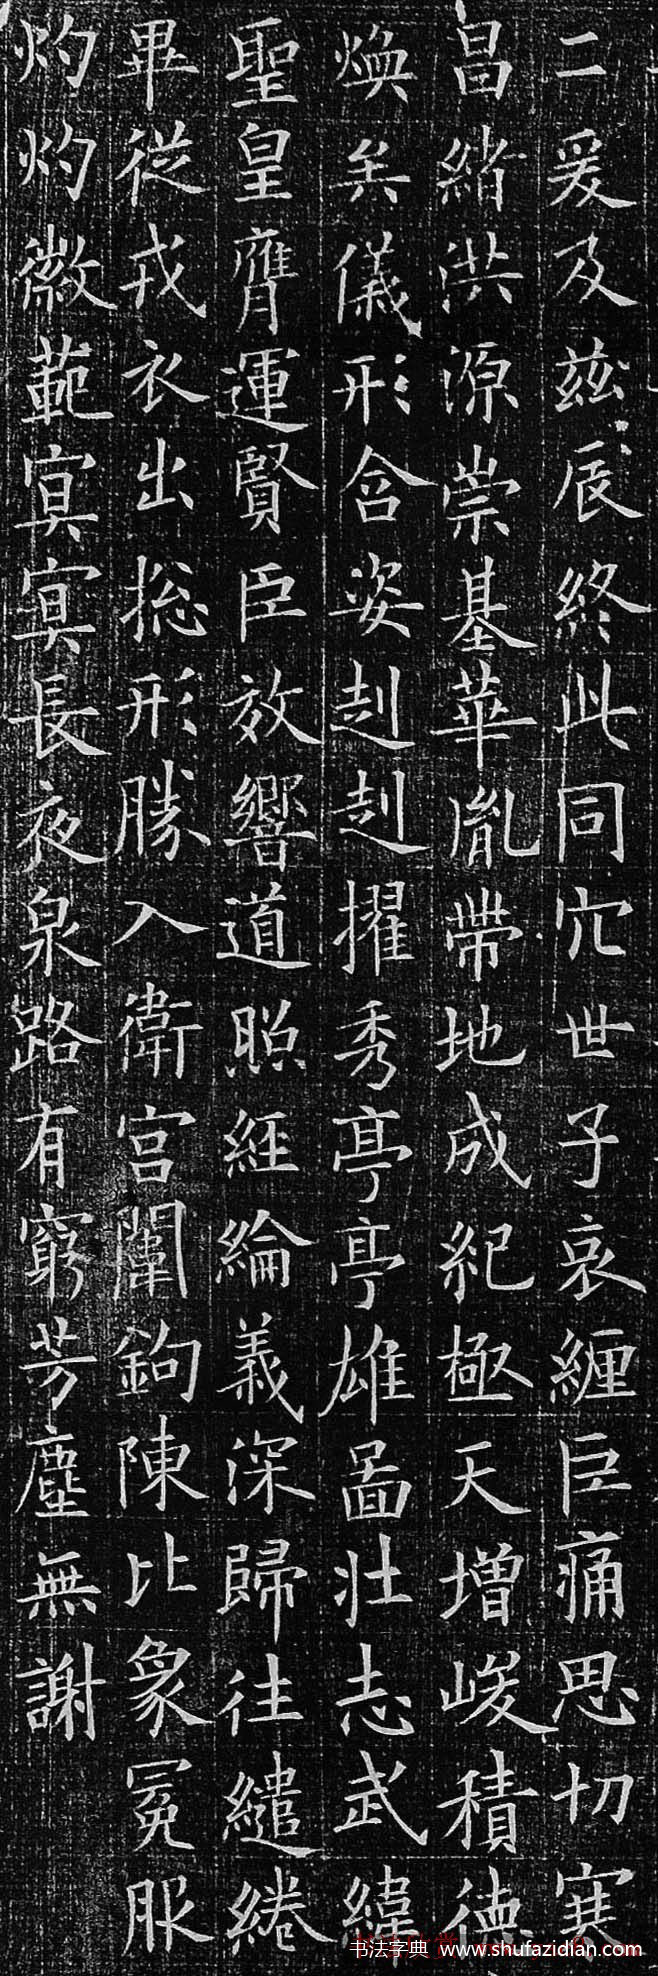 二爰及茲辰終此同穴世子哀纏巨痛思切寒
昌緒洪源崇基華胤帶地成紀極天增峻積德
煥矣儀形含姿赳赳擢秀亭亭雄啚壯志武緯
聖皇膺運賢臣效響道照經綸義深歸往繾綣
畢從戎衣出摠形勝入衛宮闈鉤陳比象冕服
灼灼徽範冥冥長夜泉路有窮芳塵無謝
书法字典 www.shufazidian.com